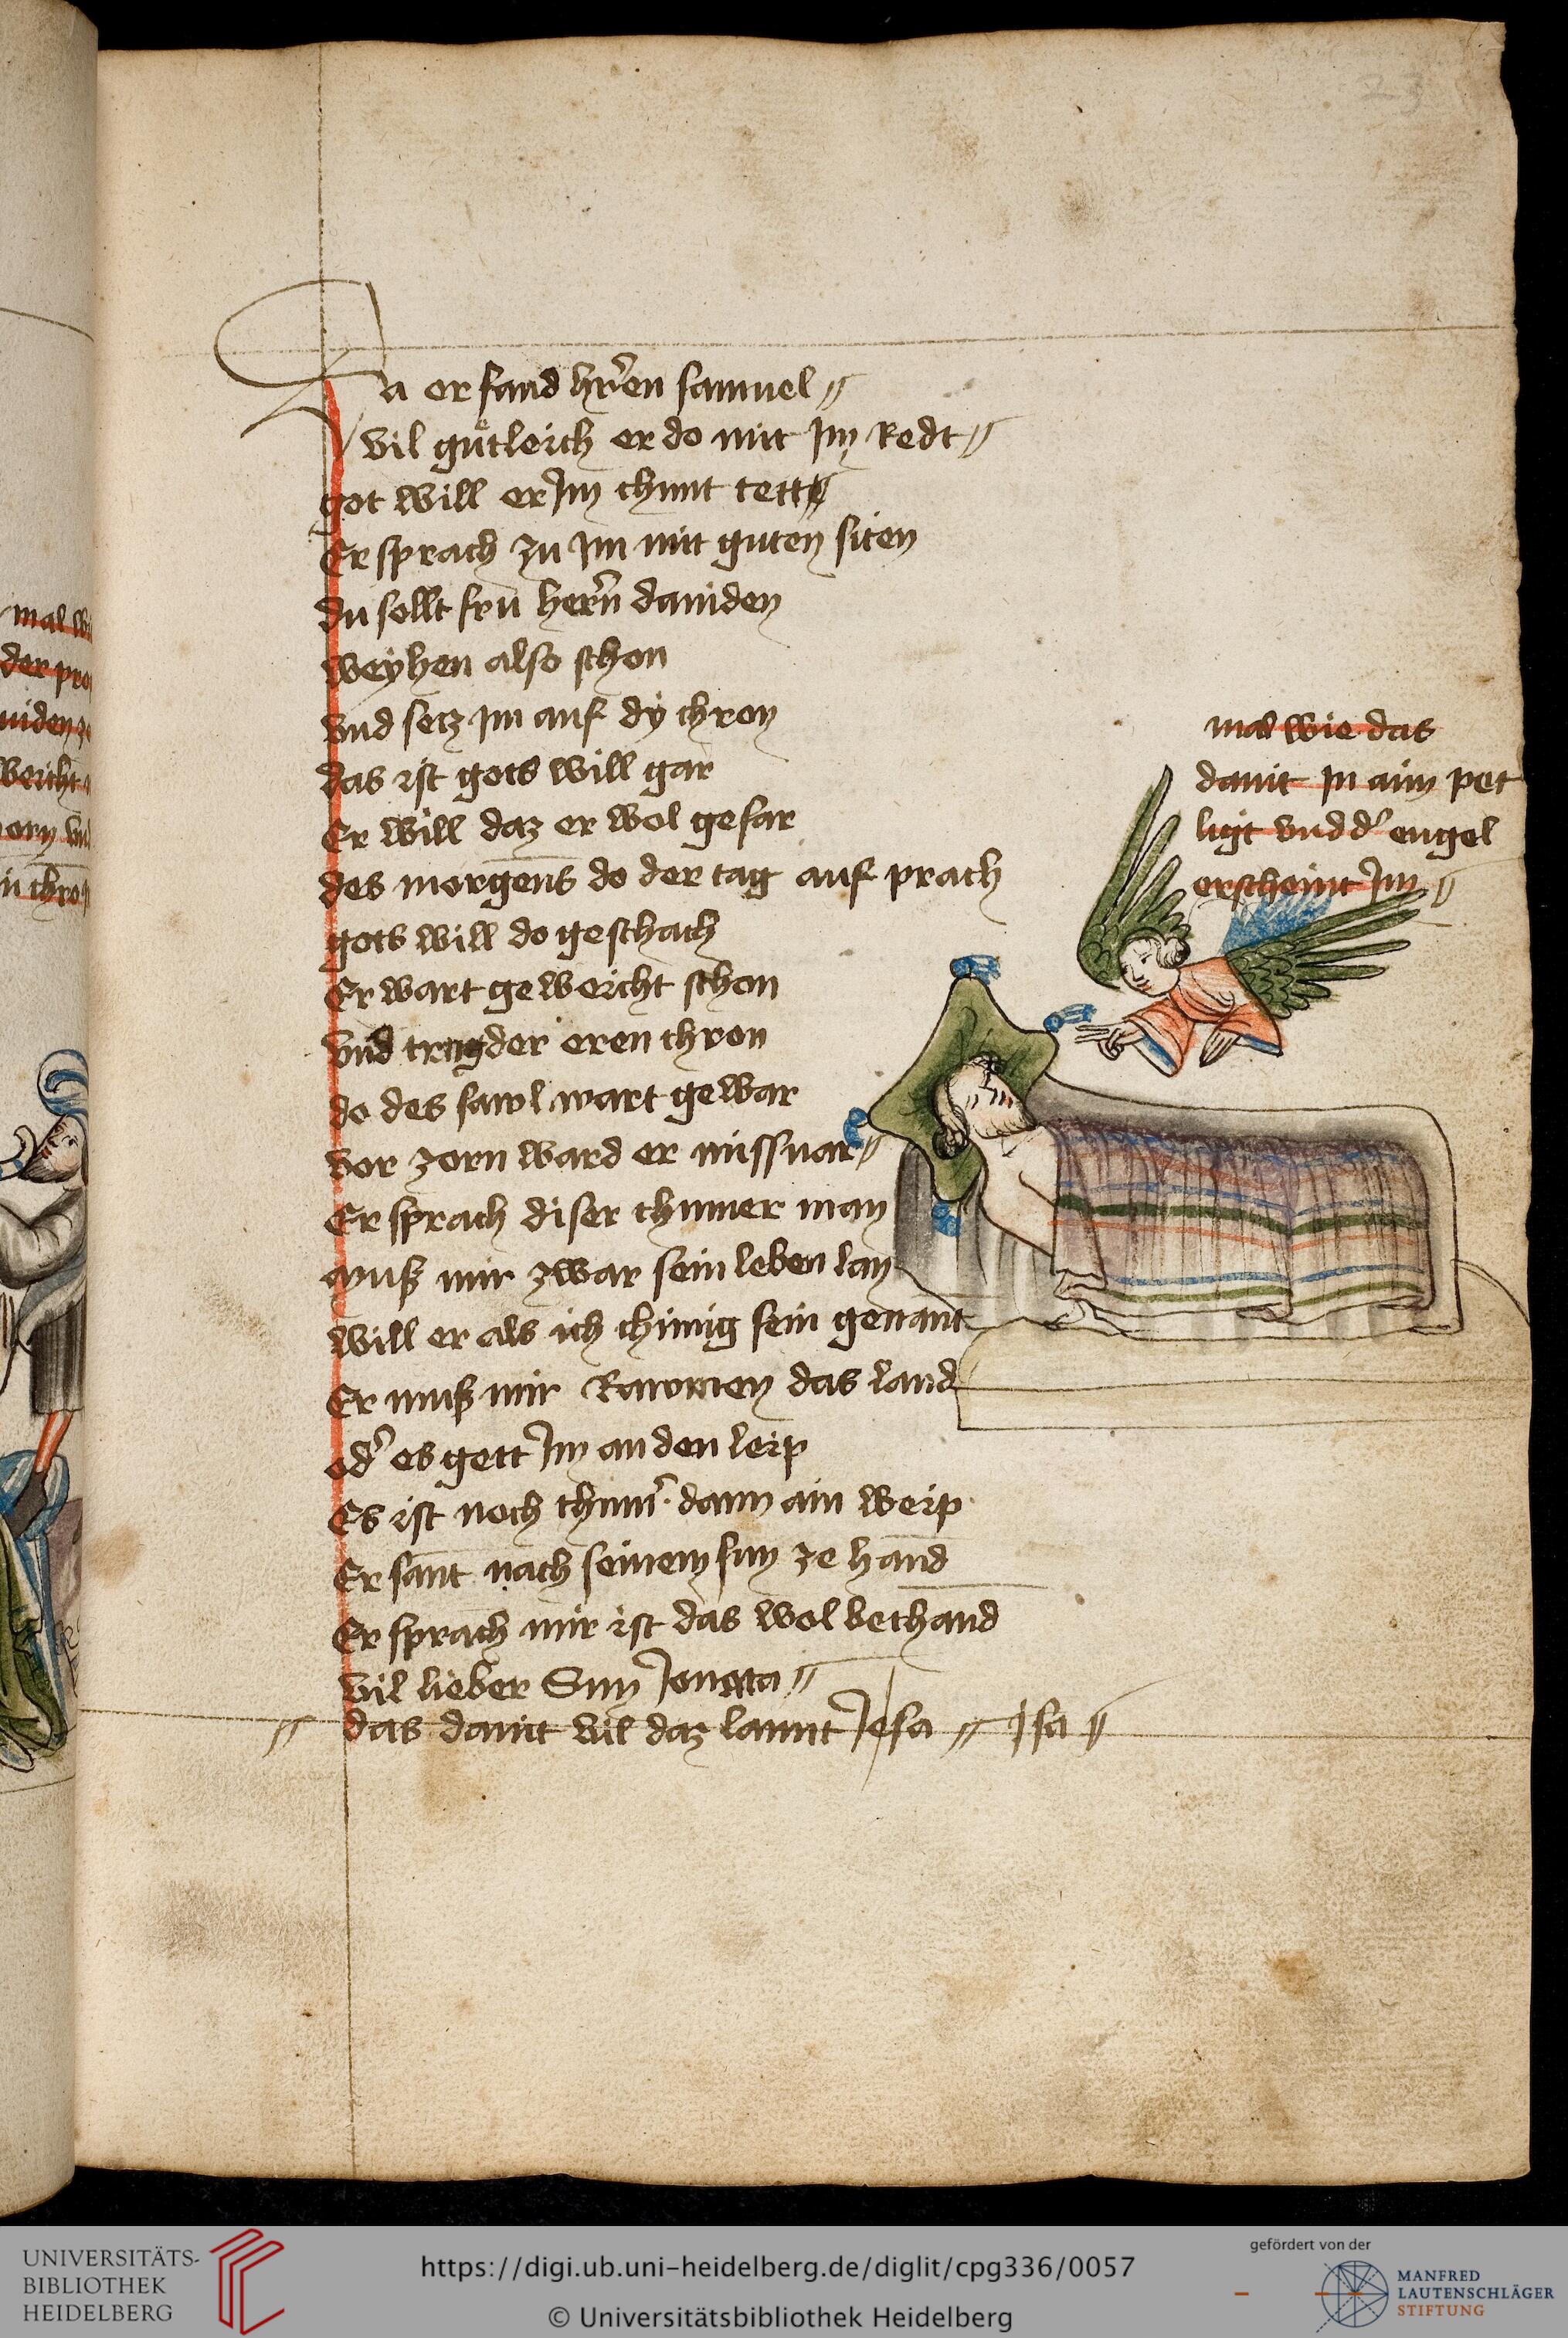 23
Da er fand hr̄en samuel
vil gütleich er do mit Im Redt
got will er Im chunt tett
Er sprach zu im mit guten siten
du sollt frü herñ dauiden
weyhen also schon
vnd setz im auf dÿ chron
das ist gots will gar
Er will daz er wol gefar
des morgens do der tag auf prach
gots will do geschach
Er wart geweicht schon
vnd trug der eren chron
do des sawl wart gewar
vor zorn ward er missuar
Er sprach diser thummer man
muß mir zwar sein leben lan
will er als ich chünig sein genant
Er muß mir Rawmen das land
od' es gett Im an den leip
Es ist noch thum̄ dann ain weip
Er sant nach seinem sun ze hand
Er sprach mir ist das wol bechand
vil lieber Sun Jonata
das dauit vil daz launt Jesa Isa
mal wie das
dauit in aim pet
ligt vnd d' engel
erscheint Im
mal
der
uiden
UNIVERSITÄTS-
BIBLIOTHEK
HEIDELBERG
https://digi.ub.uni-heidelberg.de/diglit/cpg336/0057
© Universitätsbibliothek Heidelberg
gefördert von der
MANFRED
LAUTENSCHLÄGER
STIFTUNG